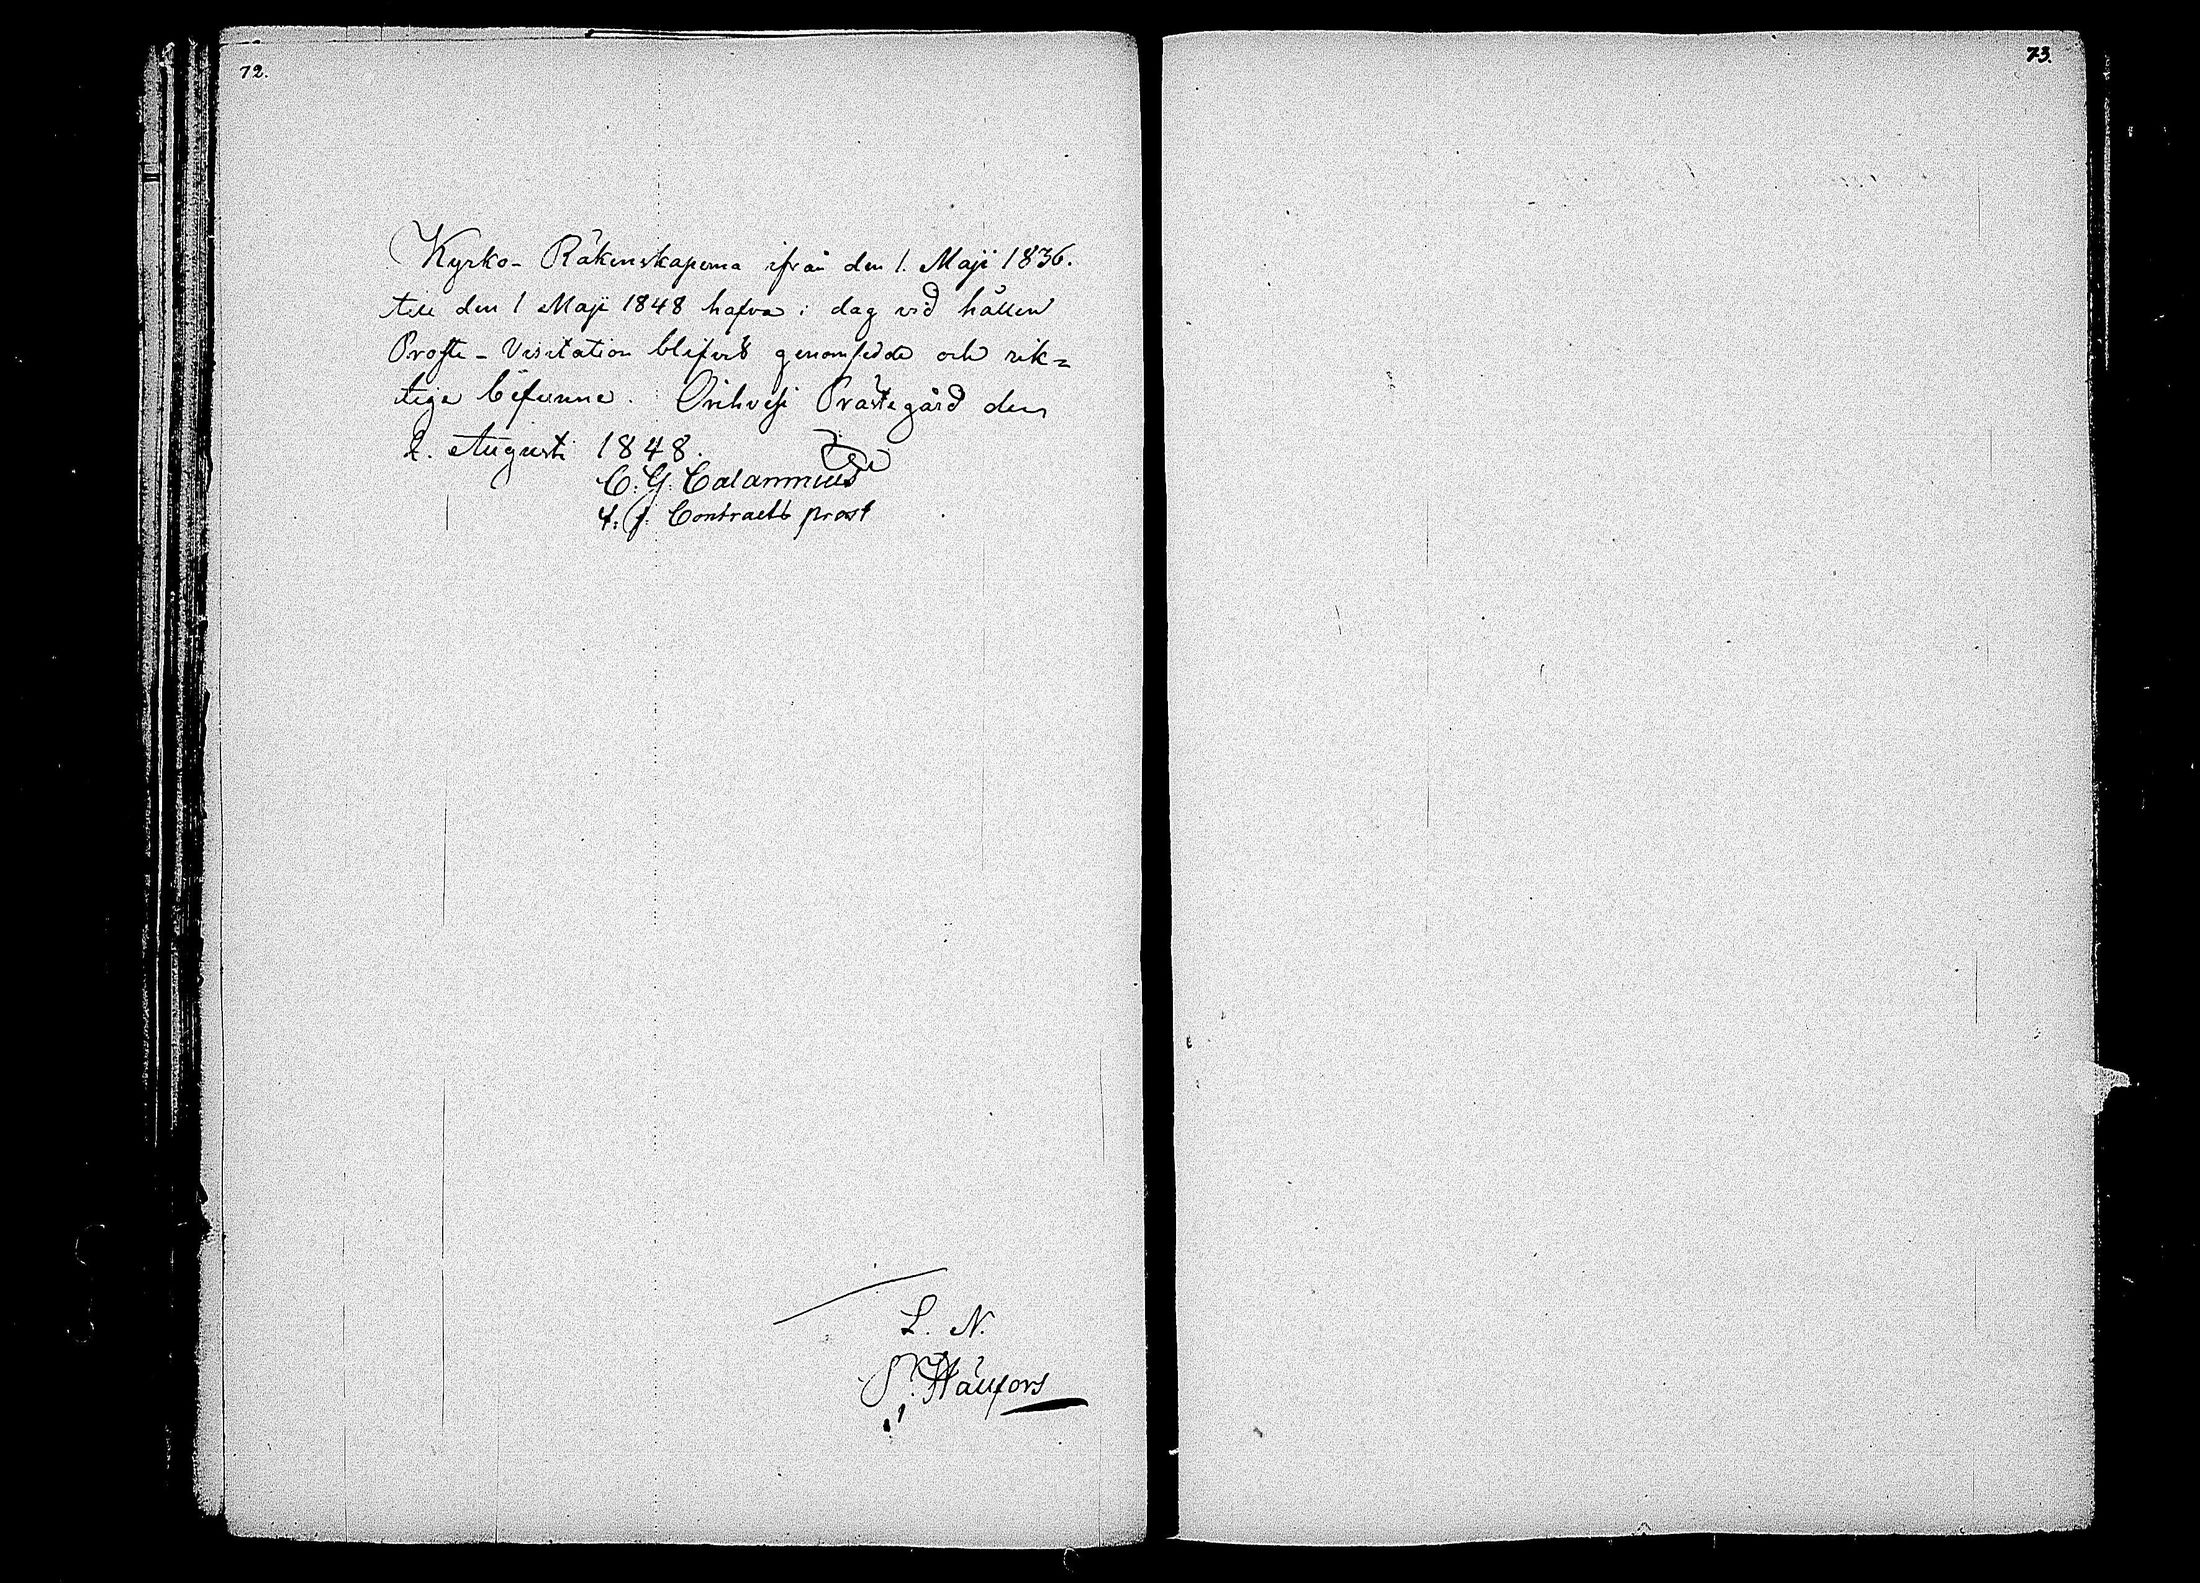 72.
73.
Kyrko-Räkenskaperna ifrån den 1. Maji 1836.
till den 1 Maji 1848 hafva i dag vid hållen
Proste-Visitation blifvit genomsedde och rik=
tige befunne. Orihvesi Prästegård den
2. Augusti 1848.
C. G. Calamnius
t. f. Contracts prost
L. N.
Hällfors